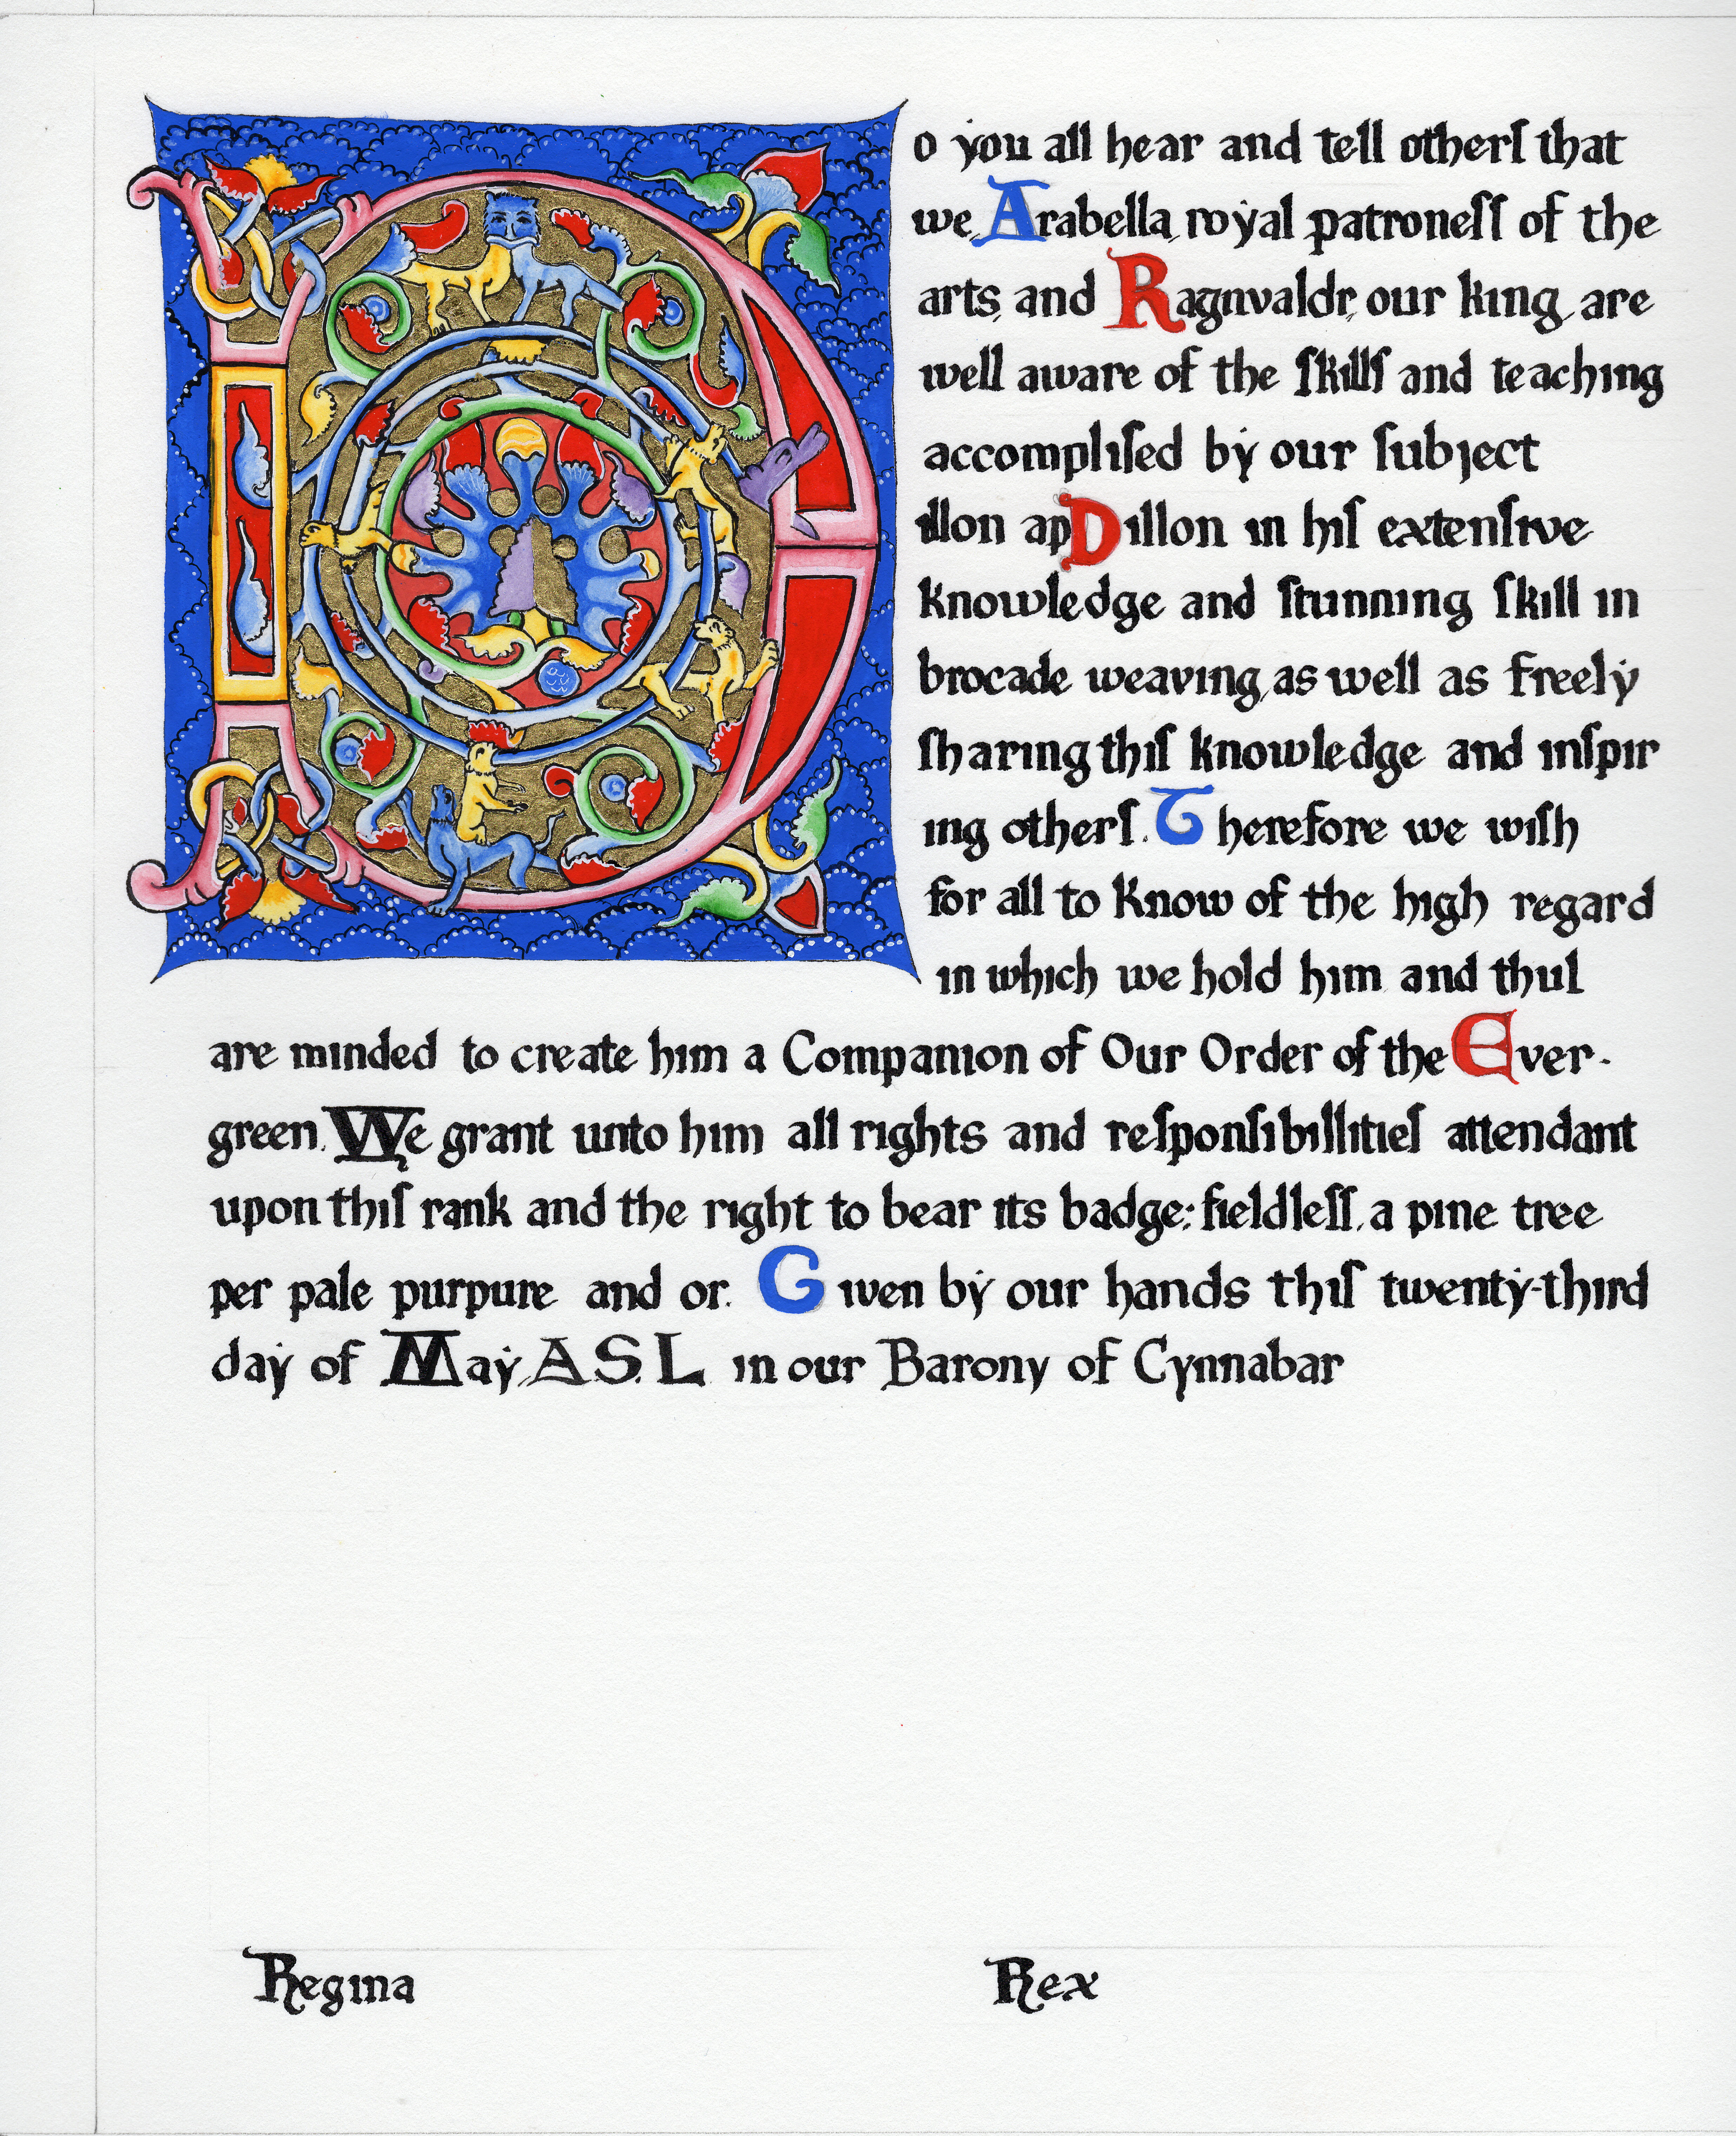 Do you all hear and tell otherſ that
we, Arabella, royal patroneſſ of the
arts, and Ragnvaldr, our king, are
well aware of the ſkillſ and teaching
accompliſed by our ſubject
illon ap Dillon in hiſ extenſive
knowledge and ſtunning ſkill in
brocade weaving, as well as freely
ſharing thiſ knowledge and inſpir
ing otherſ. Therefore we wiſh
for all to know of the high regard
in which we hold him and thuſ
are minded to create him a Companion of Our Order of the Ever-
green. We grant unto him all rights and reſponſibillitieſ attendant
upon thiſ rank and the right to bear its badge: fieldleſſ, a pine tree
per pale purpure and or. Given by our hands thiſ twenty-third
day of May, A.S. L in our Barony of Cynnabar
Regina Rex